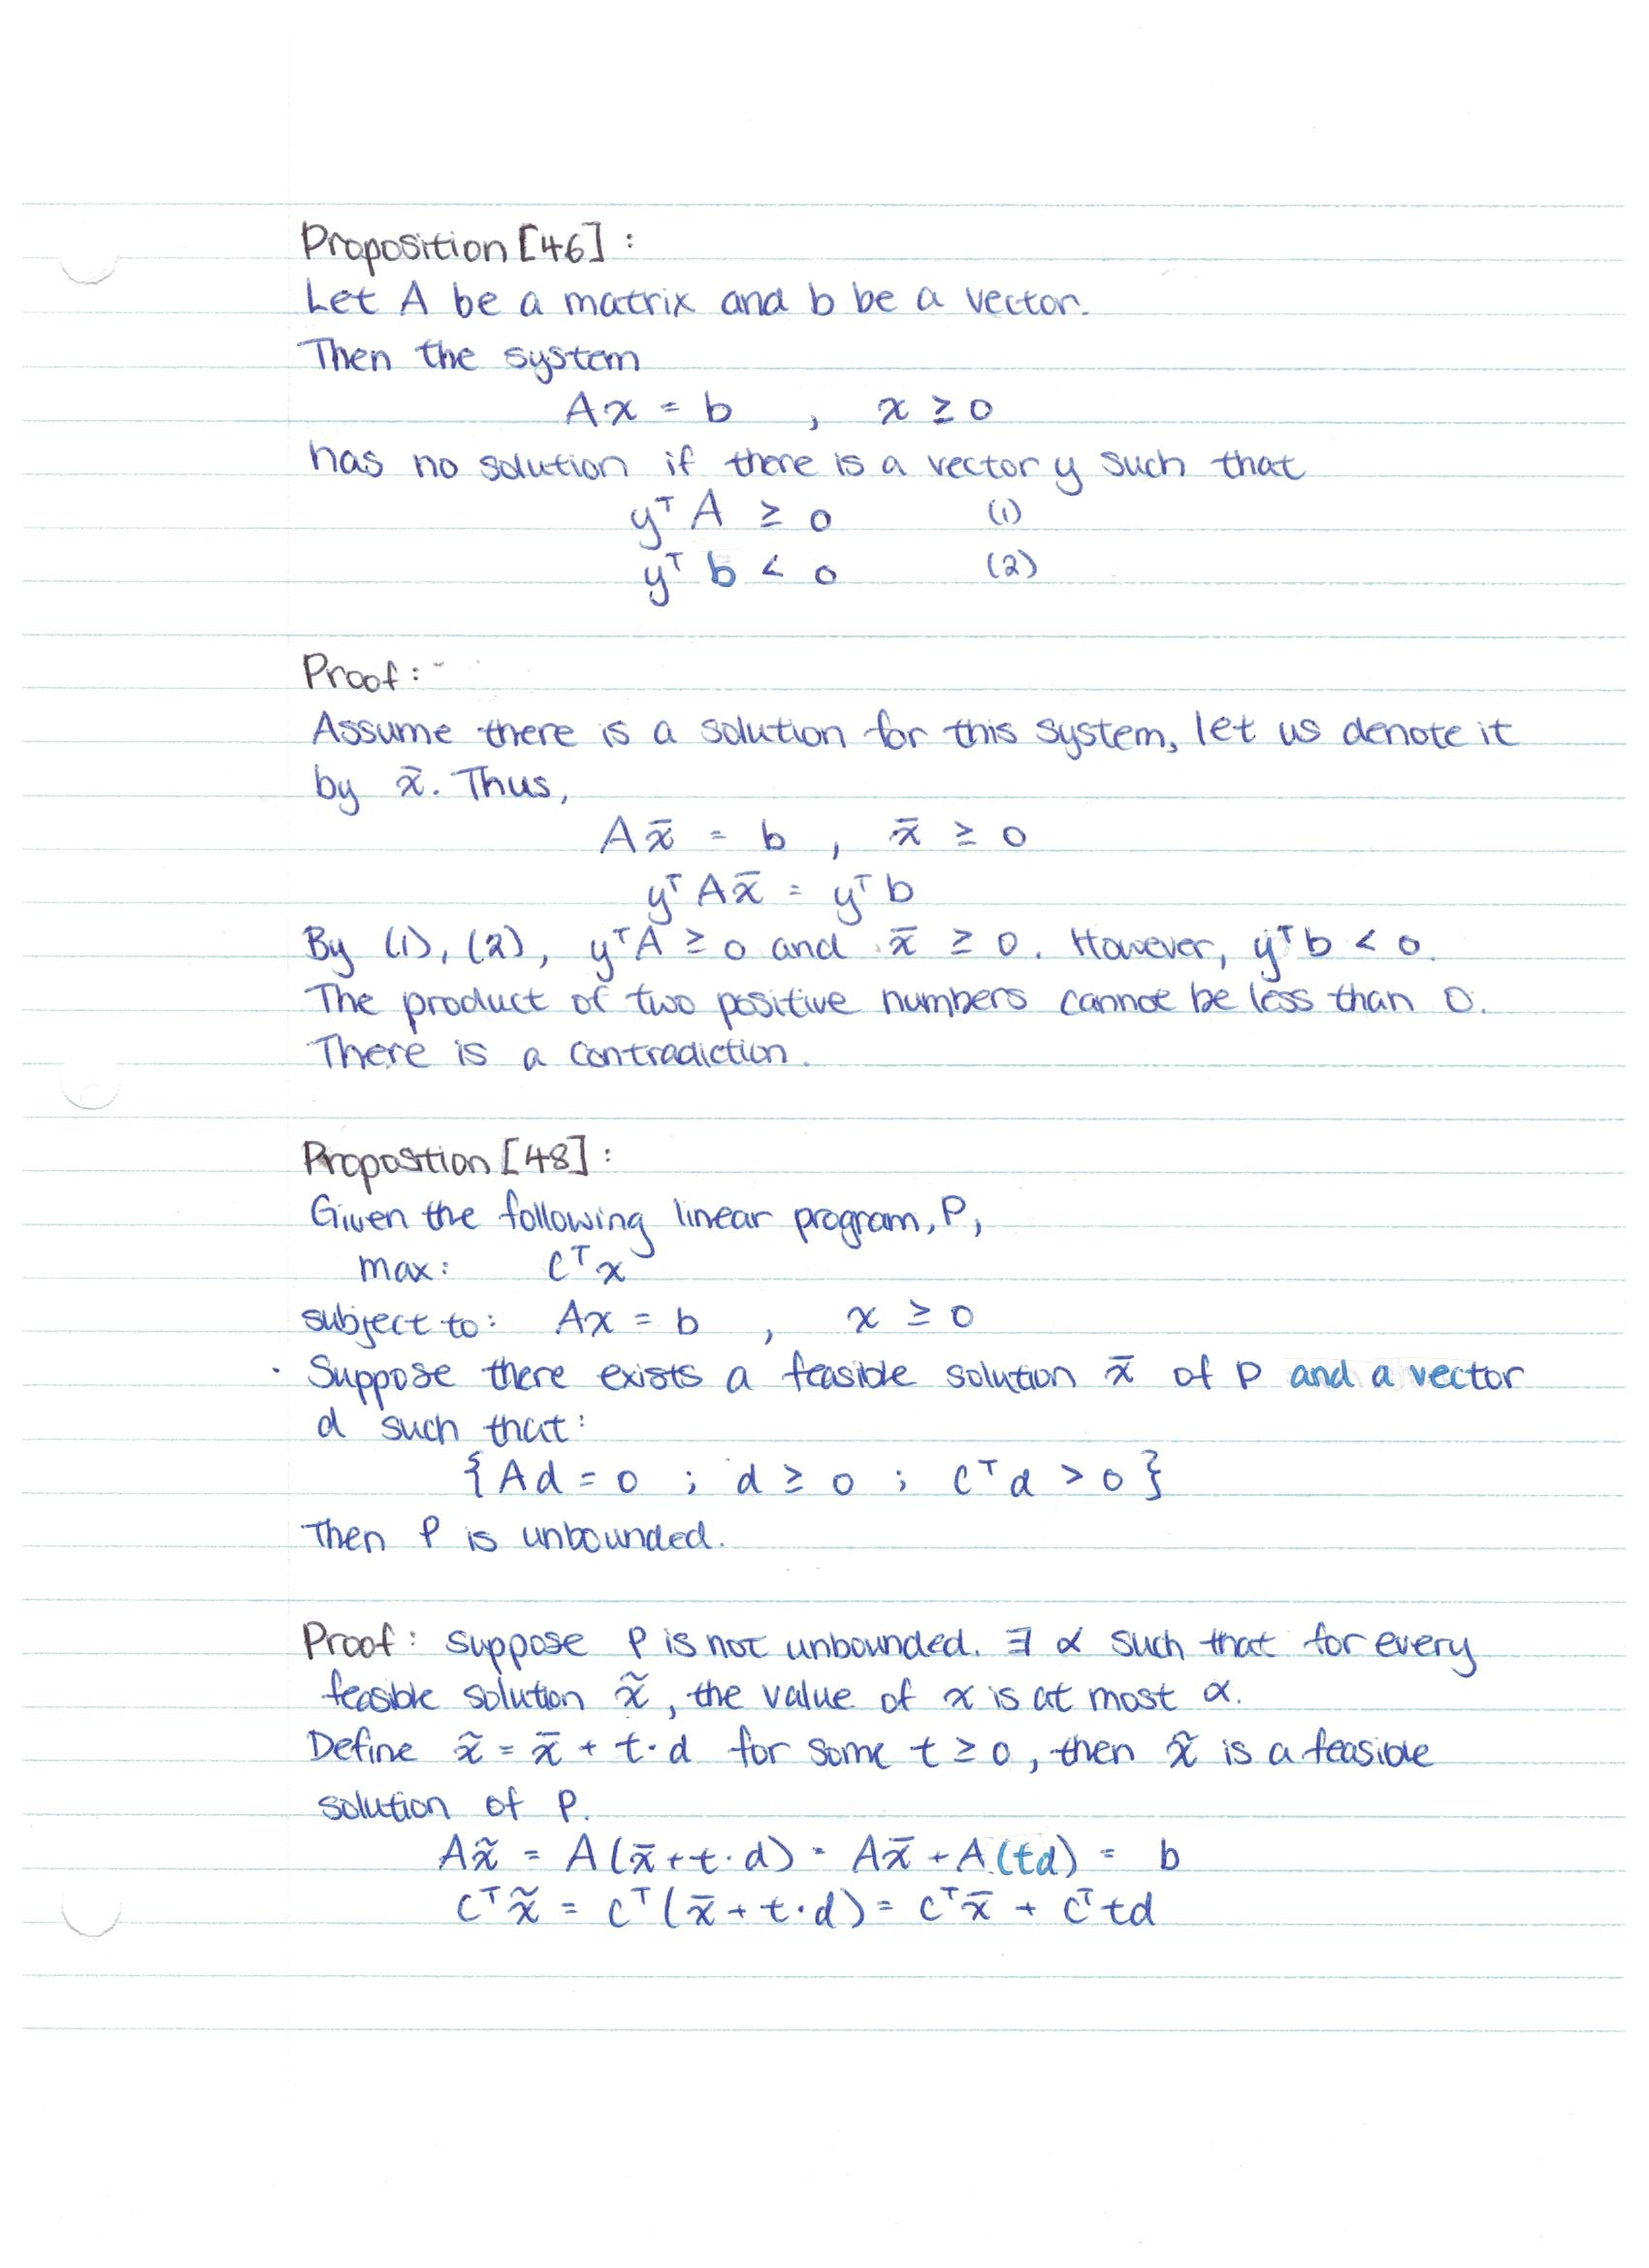 Proposition [46] :
Let A be a matrix and b be a vector.
Then the system
Ax = b , x ≥ 0
has no solution if there is a vector y such that
yᵀ A ≥ 0 (1)
yᵀ b < 0 (2)
Proof :
Assume there is a solution for this system, let us denote it
by x̄. Thus,
Ax̄ = b , x̄ ≥ 0
yᵀ Ax̄ = yᵀ b
By (1), (2), yᵀA ≥ 0 and x̄ ≥ 0. However, yᵀb < 0.
The product of two positive numbers cannot be less than 0.
There is a contradiction.
Propostion [48] :
Given the following linear program, P,
max: cᵀx
subject to: Ax = b , x ≥ 0
· Suppose there exists a feasible solution x̄ of P and a vector
d such that:
{Ad = 0 ; d ≥ 0 ; cᵀd > 0}
Then P is unbounded.
Proof : suppose P is not unbounded. ∃ α such that for every
feasible solution x̃, the value of x is at most α.
Define x̃ = x̄ + t·d for some t ≥ 0, then x̃ is a feasible
solution of P.
Ax̃ = A(x̄+t·d) = Ax̄ + A(td) = b
cᵀx̃ = cᵀ(x̄ + t·d) = cᵀx̄ + cᵀtd